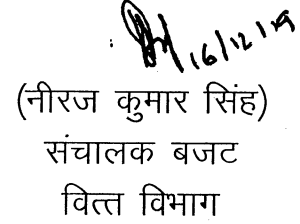 16/12/19
(नीरज कुमार सिंह)
संचालक बजट
वित्त विभाग